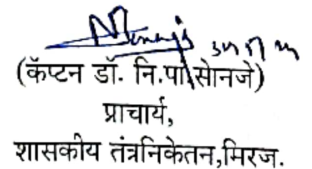 (कॅप्टन डॉ. नि.पा.सोनजे)
प्राचार्य,
शासकीय तंत्रनिकेतन,मिरज.